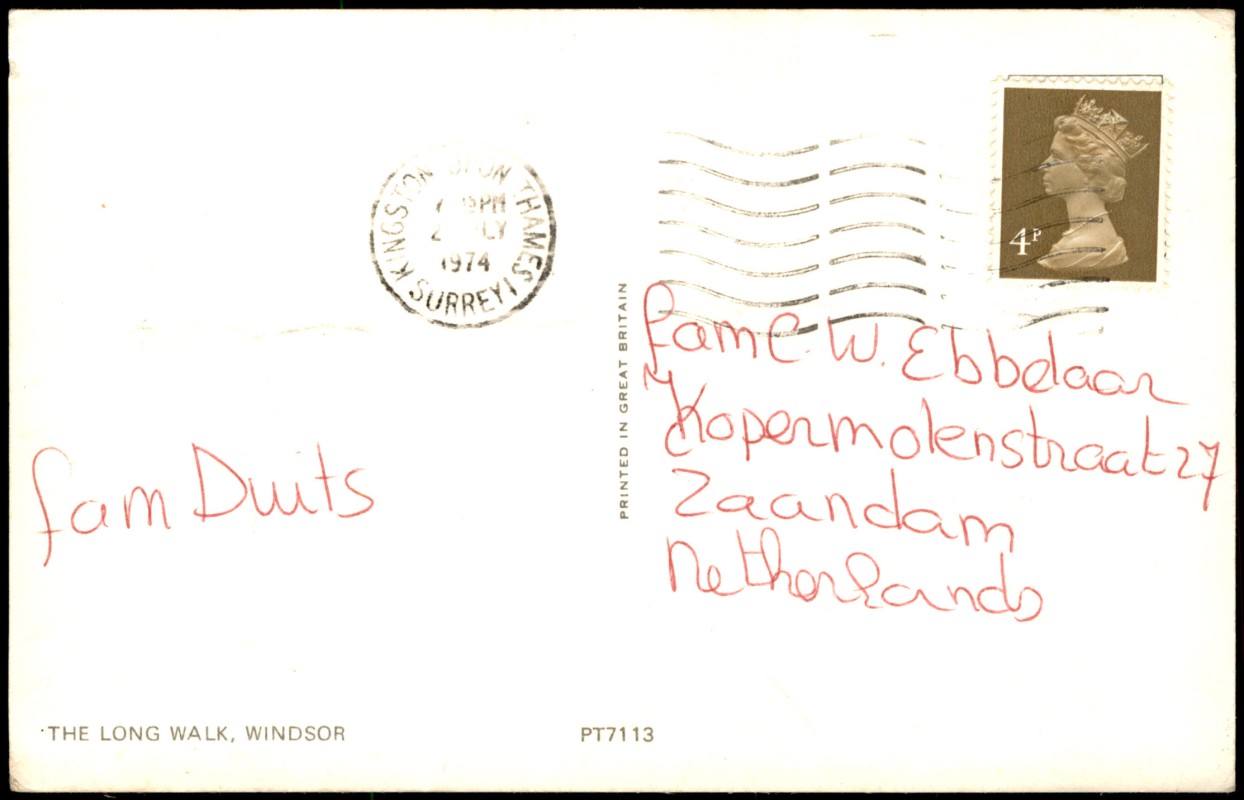 KINGSTON UPON THAMES
PM
1974
SURREY
4P
PRINTED IN GREAT BRITAIN
fam C. W. Ebbelaar
Kopermolenstraat 27
Zaandam
Netherlands
fam Duits
THE LONG WALK, WINDSOR
PT7113